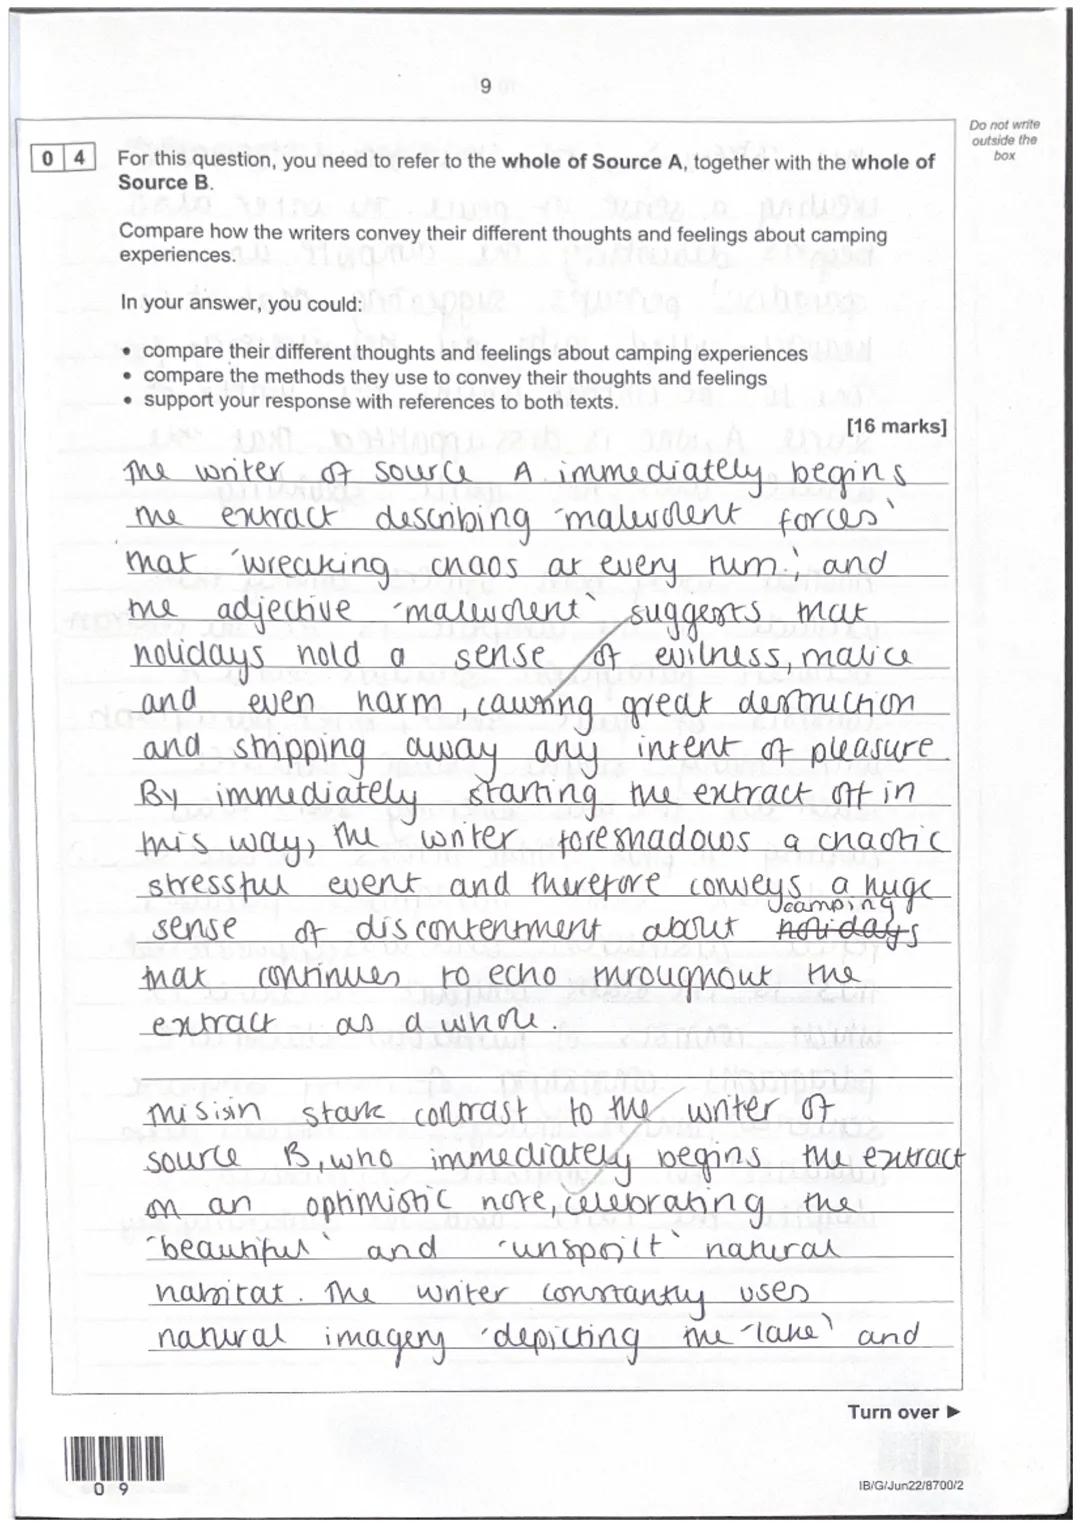 9
Do not write
outside the
box
0 4
For this question, you need to refer to the whole of Source A, together with the whole of
Source B.
Compare how the writers convey their different thoughts and feelings about camping
experiences.
In your answer, you could:
• compare their different thoughts and feelings about camping experiences
• compare the methods they use to convey their thoughts and feelings
• support your response with references to both texts.
[16 marks]
The writer of source A immediately begins
the extract describing 'malevolent forces'
that 'wreaking chaos at every turn.' and
the adjective 'malevolent' suggests that
holidays hold a sense of evilness, malice
and even harm, causing great destruction
and stripping away any intent of pleasure.
By immediately starting the extract off in
this way, the writer foreshadows a chaotic
stressful event and therefore conveys a huge
camping
sense of discontentment about holidays
that continues to echo throughout the
extract as a whole.
This is in stark contrast to the writer of
source B, who immediately begins the extract
on an optimistic note, celebrating the
'beautiful' and 'unspoilt' natural
habitat. The writer constantly uses
natural imagery 'depicting the 'lake' and
Turn over ►
0 9
IB/G/Jun22/8700/2